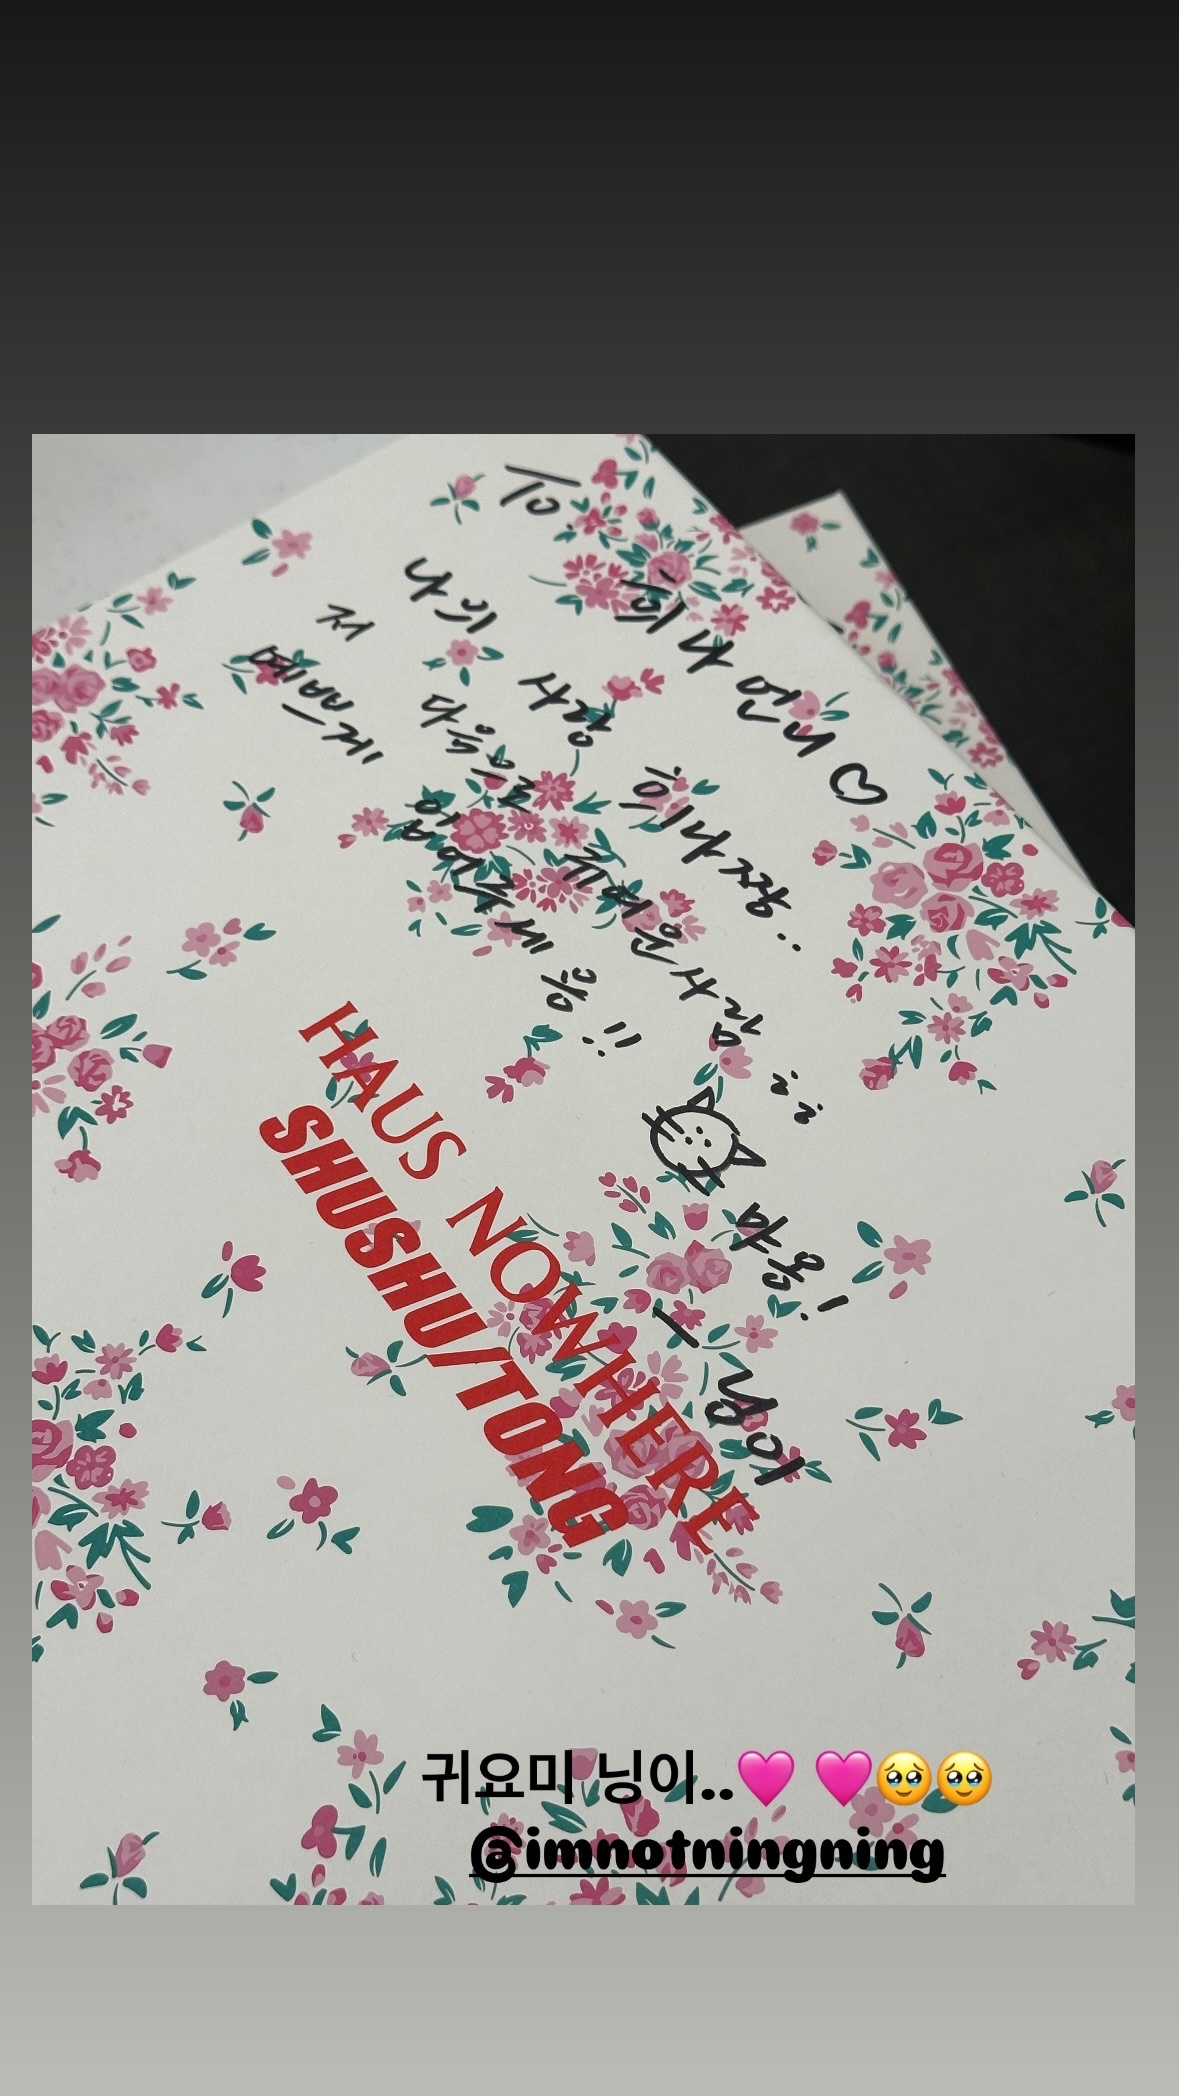 To. 희나 언니 ♡
나의 사랑 희나짱..
저 다음으로 귀여운 사람 ㅋㅋ
예쁘게 입어주세용!!
- 닝이
HAUS NOWHERE
SHUSHU/TONG
귀요미 닝아..🩷 🩷🥹🥹
@imnotningning